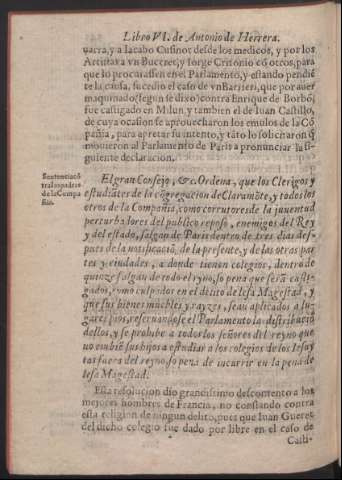 Libro VI. de Antonio de Herrera.
uarra, y a Iacabo Cusinot desde los medicos, y por los
Artistas a vn Buceret, y Iorge Critonio cō otros, para
que lo procurassen en el Parlamento, y estando pendiē
te la causa, sucedio el caso de vn Barrieri, que por auer
maquinado (segun se dixo) contra Enrique de Borbō,
fue castigado en Milun, y tambien el de Iuan Castillo,
de cuya ocasion se aprouecharon los emulos de la Cō
pañia, para apretar su intento, y tāto lo solicitaron q̄
mouieron al Parlamento de Paris a pronunciar la si-
guiente declaracion.
Sentencia cō
tra los padres
de la Compa
ñia.
El gran Consejo, &c. Ordena, que los Clerigos y
estudiātes de la cōgregacion de Claramōte, y todos los
otros de la Compañia, como corrutores de la juuentud
perturbadores del publico reposo, enemigos del Rey
y del estado, salgan de Paris dentro de tres dias des-
pues de la notificaciō, de la presente, y de las otras par
tes y ciudades, a donde tienen colegios, dentro de
quinze salgan de todo el reyno, so pena que serā casti-
gados, como culpados en el delito de lesa Magestad, y
que sus bienes muebles y rayzes, sean aplicados a lu-
gares pios, reseruandose el Parlamento la distribuciō
dellos, y se prohibe a todos los señores del reyno que
no embiē sus hijos a estudiar a los colegios de los Iesuy
tas fuera del reyno, so pena de incurrir en la pena de
lesa Magestad.
Esta resolucion dio grandissimo descontento a los
mejores hombres de Francia, no constando contra
esta religion de ningun delito, pues que Iuan Gueret
del dicho colegio fue dado por libre en el caso de
Casti-